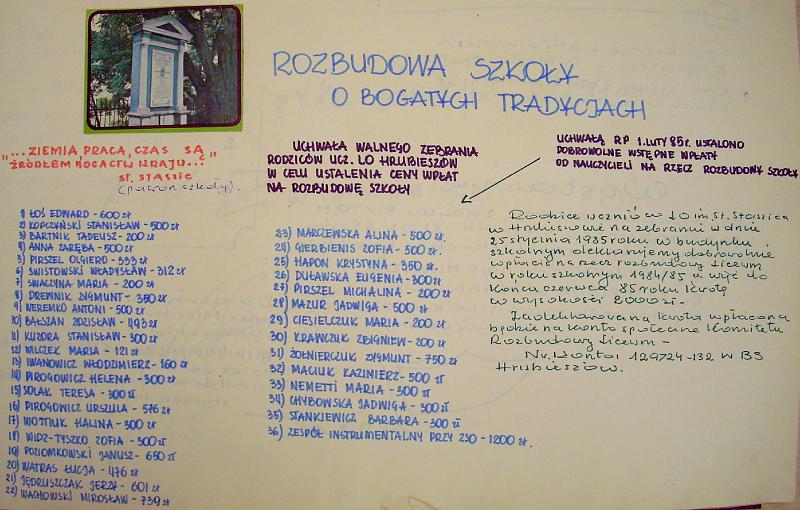 ROZBUDOWA SZKOŁY
O BOGATYCH TRADYCJACH
"...ZIEMIA, PRACA, CZAS SĄ
ŹRÓDŁEM BOGACTW KRAJU..."
ST. STASZIC
(patron szkoły).
UCHWAŁA WALNEGO ZEBRANIA
RODZICÓW UCZ. LO HRUBIESZÓW
W CELU USTALENIA CENY WPŁAT
NA ROZBUDOWĘ SZKOŁY
UCHWAŁĄ RP 1.LUTY 85r. USTALONO
DOBROWOLNE WSTĘPNE WPŁATY
OD NAUCZYCIELI NA RZECZ ROZBUDOWY SZKOŁY
1) ŁOŚ EDWARD - 600 zł
2) KOPCZYŃSKI STANISŁAW - 500 zł
3) BARTNIK TADEUSZ - 200 zł
4) ANNA ZARĘBA - 500 zł
5) PIRSZEL OLGIERD - 333 zł
6) ŚWISTOWSKI WŁADYSŁAW - 312 zł
7) SWACZYNA MARIA - 200 zł
8) DREWNIK ZYGMUNT - 350 zł
9) WEREMKO ANTONI - 500 zł
10) BAŁSZAN ZDZISŁAW - 493 zł
11) KUZDRA STANISŁAW - 300 zł
12) WILCZEK MARIA - 121 zł
13) IWANOWICZ WŁODZIMIERZ - 160 zł
14) PIROGOWICZ HELENA - 300 zł
15) SOLAK TERESA - 300 zł
16) PIROGOWICZ URSZULA - 576 zł
17) WOJTIUK HALINA - 300 zł
18) WIDZ-TYSZKO ZOFIA - 300 zł
19) POZIOMKOWSKI JANUSZ - 650 zł
20) WATRAS ŁUCJA - 476 zł
21) JĘDRUSZCZAK JERZY - 601 zł
22) WACHOWSKI MIROSŁAW - 739 zł
23) MARCZEWSKA ALINA - 500 zł.
24) GIERBIENIS ZOFIA - 500 zł.
25) HAPON KRYSTYNA - 350 zł.
26) DUŁAWSKA EUGENIA - 300 zł
27) PIRSZEL MICHALINA - 200 zł
28) MAZUR JADWIGA - 500 zł
29) CIESIELCZUK MARIA - 200 zł
30) KRAWCZUK ZBIGNIEW - 200 zł
31) ŻOŁNIERCZUK ZYGMUNT - 750 zł
32) MACIUK KAZIMIERZ - 500 zł
33) NEMETTI MARIA - 300 zł
34) CHYBOWSKA JADWIGA - 300 zł
35) STANKIEWICZ BARBARA - 300 zł
36) ZESPÓŁ INSTRUMENTALNY PRZY ZSO - 1200 zł.
Rodzice uczniów LO im. St. Staszica
w Hrubieszowie na zebraniu w dniu
25 stycznia 1985 roku w budynku
szkolnym deklarujemy dobrowolnie
wpłacić na rzecz rozbudowy liceum
w roku szkolnym 1984/85 a więc do
końca czerwca 85 roku kwotę
w wysokości 2000 zł -
Zadeklarowana kwota wpłacona
będzie na konto społeczne Komitetu
Rozbudowy Liceum -
Nr. konta 129724-132 W BS
Hrubieszów.